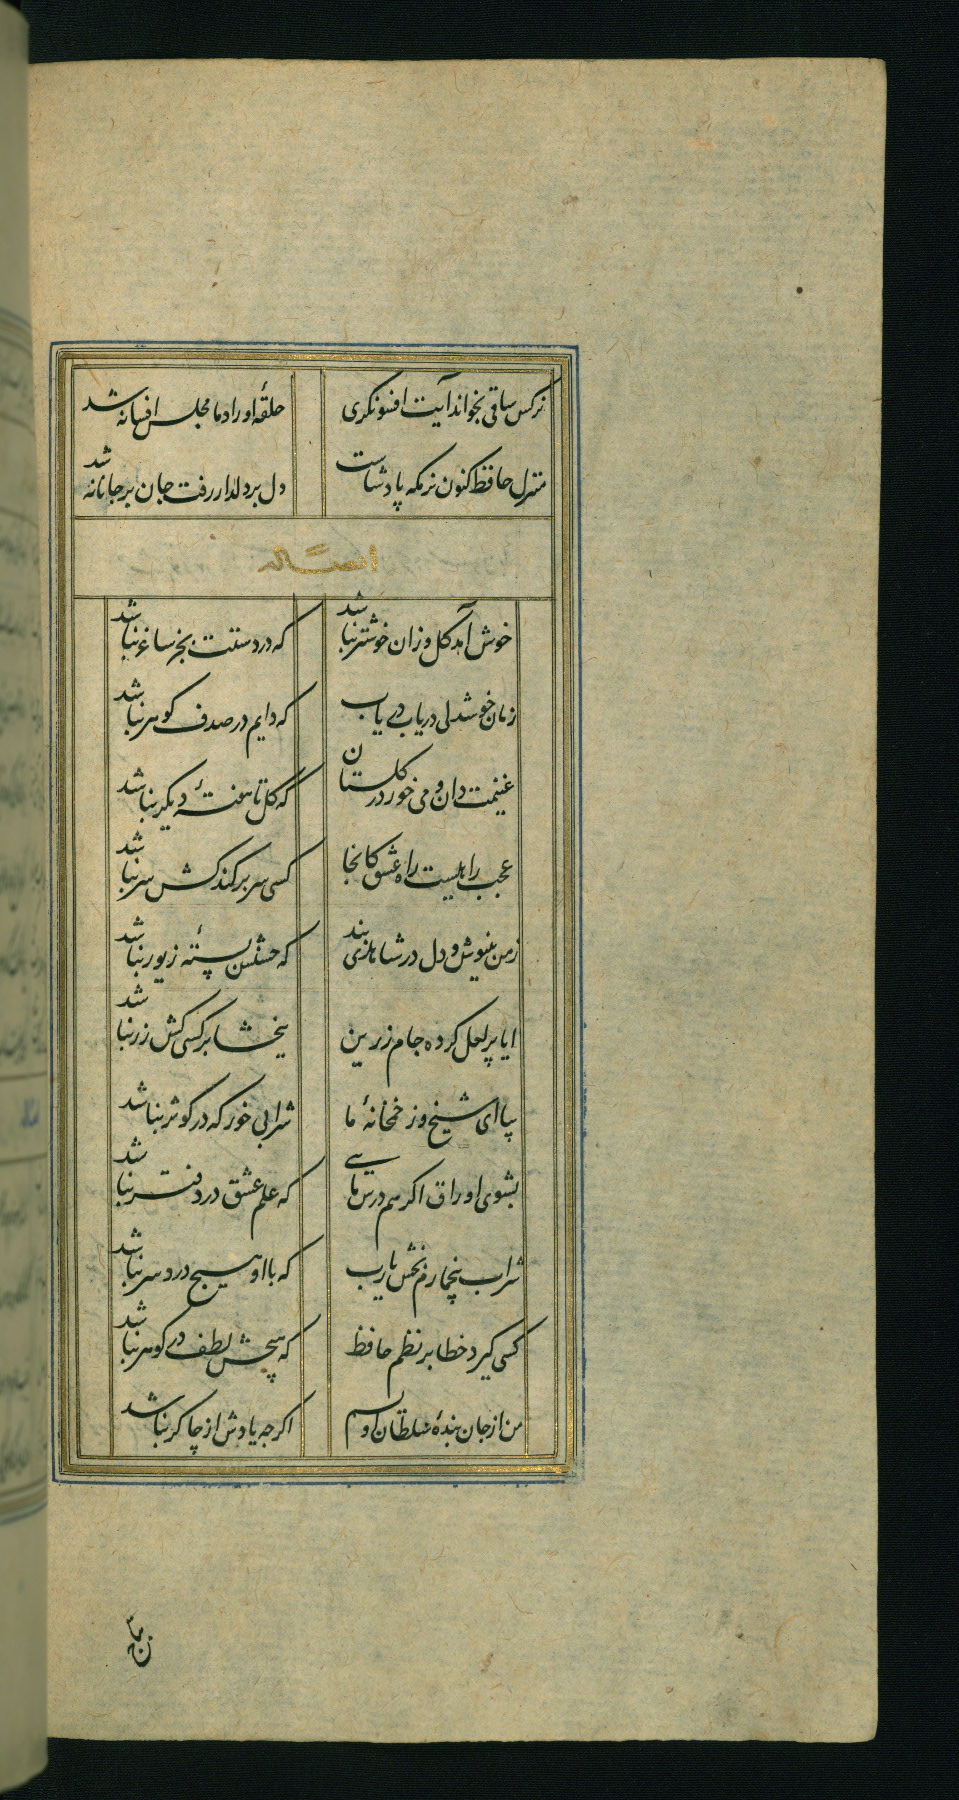 نرکس ساقی بخواند آیت افسونکری حلقهٔ اوراد ما مجلس افسانه شد
منزل حافظ کنون بزمکه پادشاست دل بر دلدار رفت جان بر جانانه شد
خوش آمد کل وزان خوشتر نباشد که در دستت بجز ساغر نباشد
زمان خوشدلی دریاب دریاب که دایم در صدف کوهر نباشد
غنیمت دان و می خور در کلستان که کل تا هفتهٔ دیکر نباشد
عجب راهیست راه عشق کانجا کسی سر بر کند کش سر نباشد
ز من بنیوش و دل در شاهدی بند که حسنش بستهٔ زیور نباشد
ایا پر لعل کرده جام زرین ببخشا بر کسی کش زر نباشد
بیا ای شیخ وز خمخانهٔ ما شرابی خور که در کوثر نباشد
بشوی اوراق اکر هم درس مایی که علم عشق در دفتر نباشد
شراب بیخمارم بخش یا رب که با او هیچ درد سر نباشد
کسی کیرد خطا بر نظم حافظ که هیچش لطف در کوهر نباشد
من از جان بندهٔ سلطان اویسم اکرچه یادش از چاکر نباشد